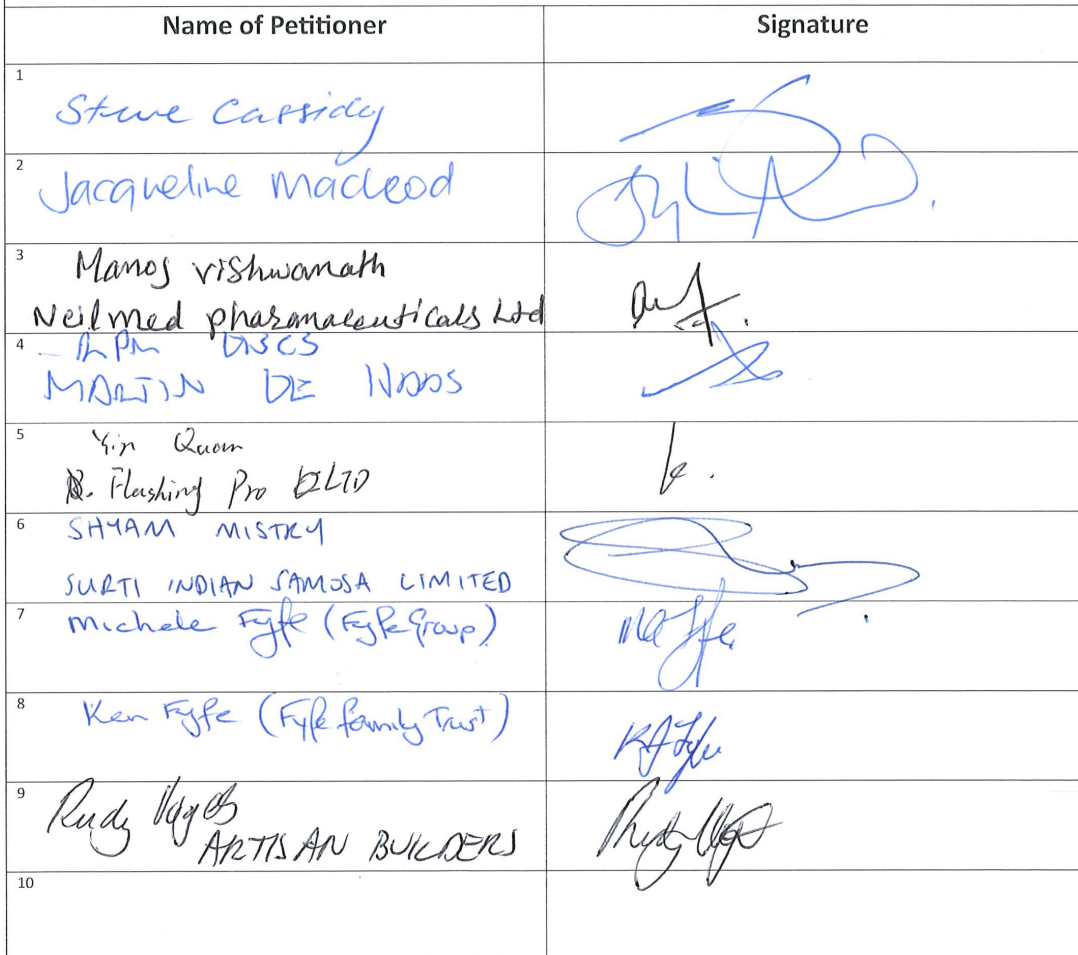 Name of Petitioner Signature
1 Steve Cassidy
2 Jacqueline Macleod
3 Manoj vishwanath
Neilmed pharamaceuticals Ltd
4
MARTIN DE
5 Yin Quan
Flashing Pro LTD
6 SHYAM MISTRY
SURTI INDIAN SAMOSA LIMITED
7 Michele Fyfe (Fyfe Group)
8 Ken Fyfe (Fyfe family Trust)
9 Rudy
ARTISAN BUILDERS
10